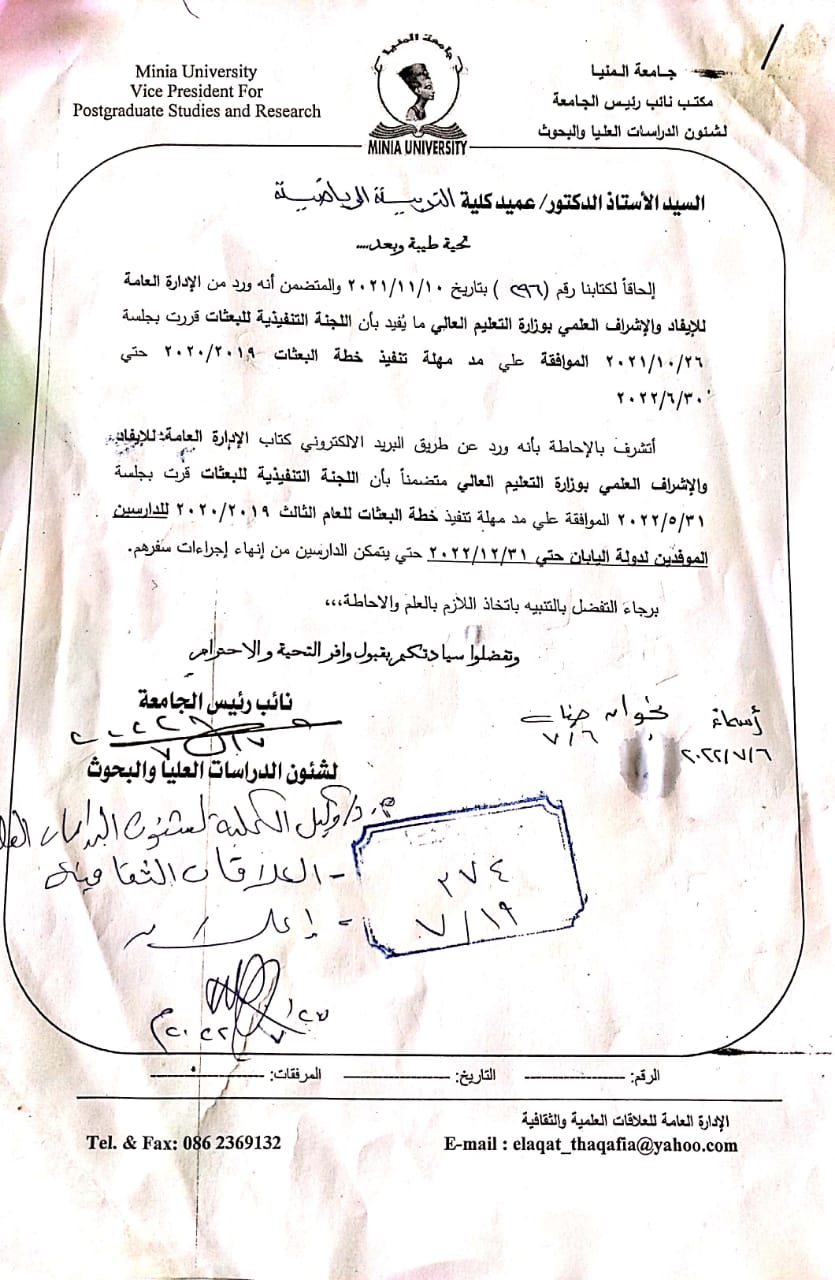 Minia University
Vice President For
Postgraduate Studies and Research
MINIA UNIVERSITY
جامعة المنيا
مكتب نائب رئيس الجامعة
لشئون الدراسات العليا والبحوث
السيد الأستاذ الدكتور/ عميد كلية التربية الرياضية
تحية طيبة وبعد،،،،
إلحاقاً لكتابنا رقم (٢٩٦ ) بتاريخ ٢٠٢١/١١/١٠ والمتضمن أنه ورد من الإدارة العامة
للإيفاد والإشراف العلمي بوزارة التعليم العالي ما يُفيد بأن اللجنة التنفيذية للبعثات قررت بجلسة
٢٠٢١/١٠/٢٦ الموافقة علي مد مهلة تنفيذ خطة البعثات ٢٠٢٠/٢٠١٩ حتي
٢٠٢٢/٦/٣٠
أتشرف بالإحاطة بأنه ورد عن طريق البريد الالكتروني كتاب الإدارة العامة للإيفاد
والإشراف العلمي بوزارة التعليم العالي متضمناً بأن اللجنة التنفيذية للبعثات قرت بجلسة
٢٠٢٢/٥/٣١ الموافقة علي مد مهلة تنفيذ خطة البعثات للعام الثالث ٢٠٢٠/٢٠١٩ للدارسين
الموفدين لدولة اليابان حتي ٢٠٢٢/١٢/٣١ حتي يتمكن الدارسين من إنهاء إجراءات سفرهم.
برجاء التفضل بالتنبيه باتخاذ اللازم بالعلم والاحاطة،،،
وتفضلوا سيادتكم بقبول وافر التحية والاحترام
نائب رئيس الجامعة
لشئون الدراسات العليا والبحوث
أسماء
٢٠٢٢/٧/٦
٧/٦
وكيل الكلية لشئون الدراسات
- العلاقات الثقافية
٣٧٤
٧/١٩
الرقم: التاريخ: المرفقات:
الإدارة العامة للعلاقات العلمية والثقافية
Tel. & Fax: 086 2369132
E-mail : elaqat_thaqafia@yahoo.com